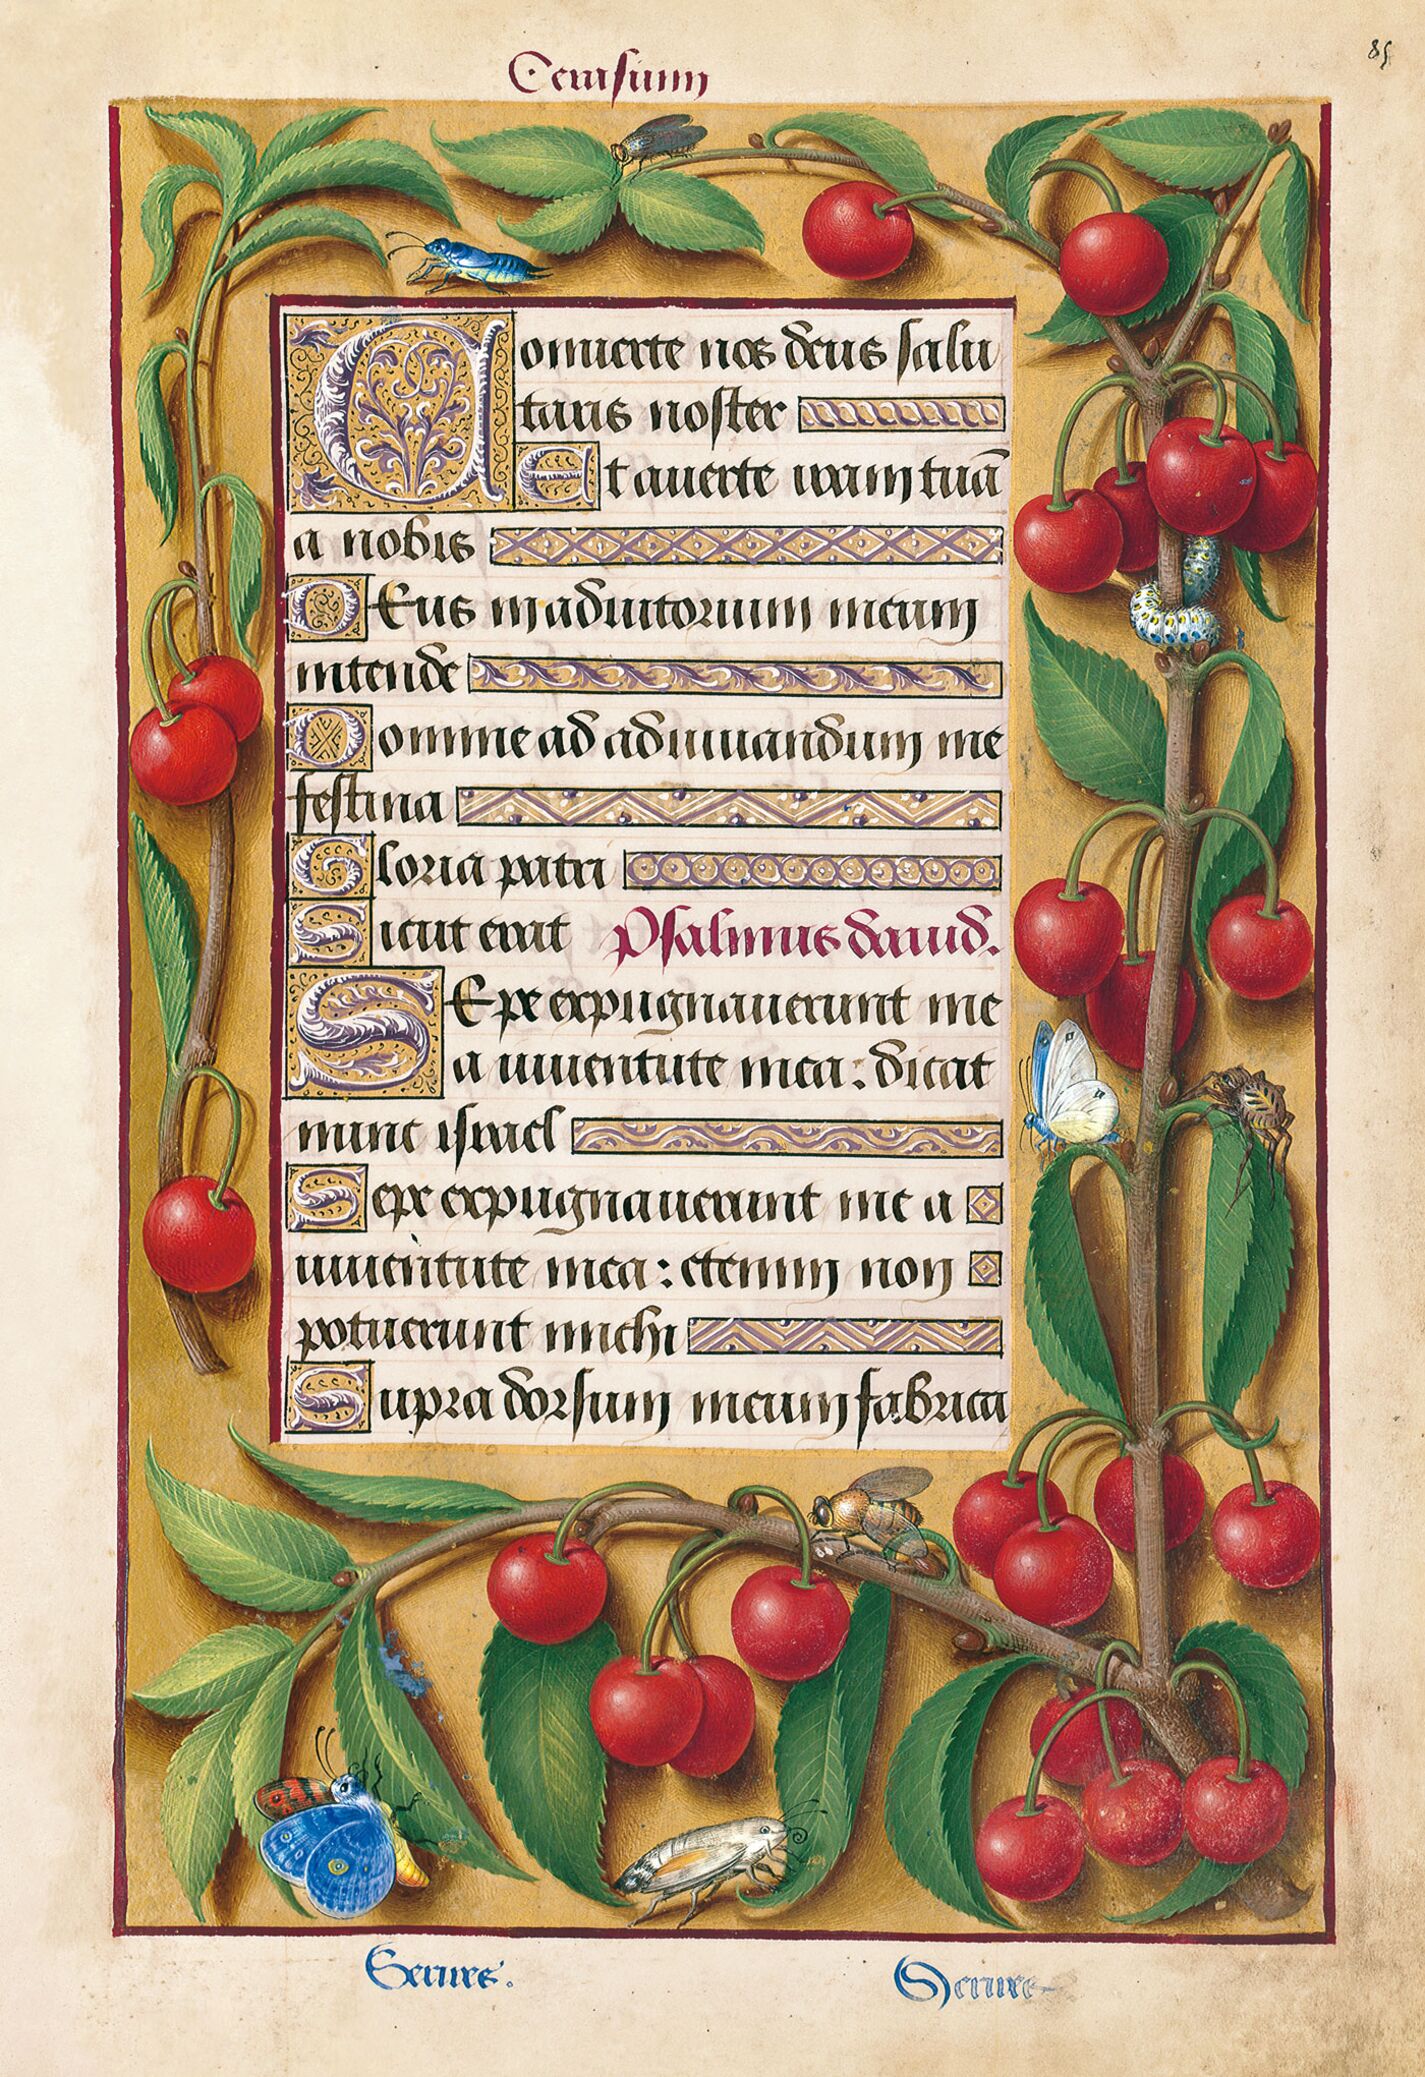 Cerasium
85
Conuerte nos deus salu
taris noster
Et auerte iram tuā
a nobis
Deus in adiutorium meum
intende
Domine ad adiuuandum me
festina
Gloria patri
Sicut erat Psalmus dauid.
Sepe expugnauerunt me
a iuuentute mea: dicat
nunc israel
Sepe expugnauerunt me a
iuuentute mea: etenim non
potuerunt michi
Supra dorsum meum fabrica